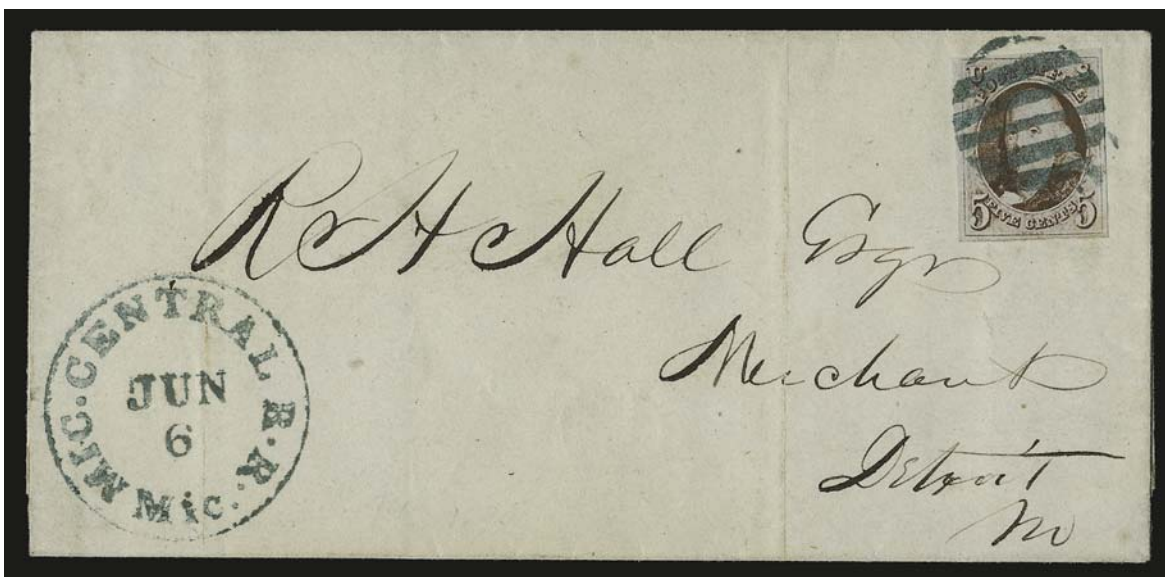 U S
POST OFFICE
5 FIVE CENTS. 5
R H Hall Esqr
Merchant
Detroit
M
MIC. CENTRAL R.R.
JUN
6
Mic.